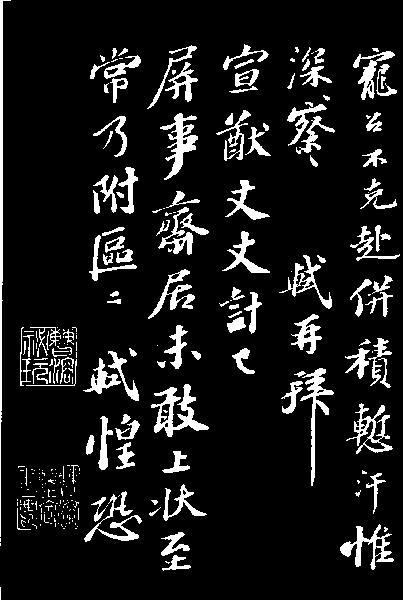 寵召不克赴併積慙汗惟
深察 軾再拜
宣猷丈丈計已
屏事齋居未敢上状至
常乃附區〻 軾惶恐